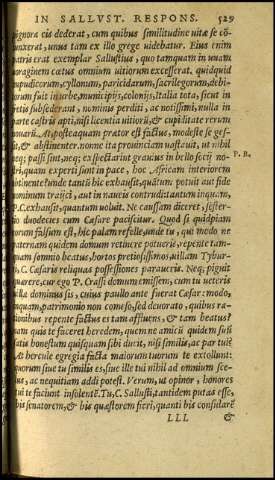 IN SALLVST. RESPONS. 529
pignora eis dederat, cum quibus similitudine uitæ se cō
iunxerat, unus tam ex illo grege uidebatur. Eius enim
patris erat exemplar Sallustius, quo tamquam in unam
uoraginem cœtus omnium uitiorum excesserat. quidquid
impudicorum, cyllonum, paricidarum, sacrilegorum, debi
torum fuit in urbe, municipijs, colonijs, Italia tota, sicut in
fretis subsederant, nominis perditi, ac notissimi, nulla in
parte castris apti, nisi licentia uitiorū, & cupiditate rerum
nouarū. At postea quam prætor est factus, modeste se ges-
sit, & abstinenter. nonne ita prouinciam uastauit, ut nihil
neq; passi sint, neq; exspectarint grauius in bello socij no-
P. R.
stri, quam experti sunt in pace, hoc Africam interiorem
obtinente? unde tantū hic exhausit, quātum potuit aut fide
nominum traijci, aut in naues contrudi. tantum inquam,
P. C. exhausit, quantum uoluit. Ne caussam diceret, sester-
tio duodecies cum Cæsare paciscitur. Quod si quidpiam
eorum falsum est, hic palam refelle, unde tu, qui modo ne
paternam quidem domum retinere potueris, repente tam-
quam somnio beatus, hortos pretiosissimos, uillam Tybur-
ti, C. Cæsaris reliquas possessiones paraueris. Neq; piguit
quærere, cur ego P. Crassi domum emissem, cum tu ueteris
uillæ dominus sis, cuius paullo ante fuerat Cæsar: modo,
inquam, patrimonio non comeso, sed deuorato, quibus ra-
tionibus repente factus es tam affluens, & tam beatus?
nam quis te faceret heredem, quem ne amicū quidem suū
satis honestum quisquam sibi ducit, nisi similis, ac par tui?
At hercule egregia facta maiorum tuorum te extollunt:
quorum siue tu similis es, siue illi tui, nihil ad omnium sce-
lus, ac nequitiam addi potest. Verum, ut opinor, honores
tui te faciunt insolentē. Tu, C. Sallusti, tantidem putas esse,
bis senatorem, & bis quæstorem fieri, quanti bis consularē
LLL &